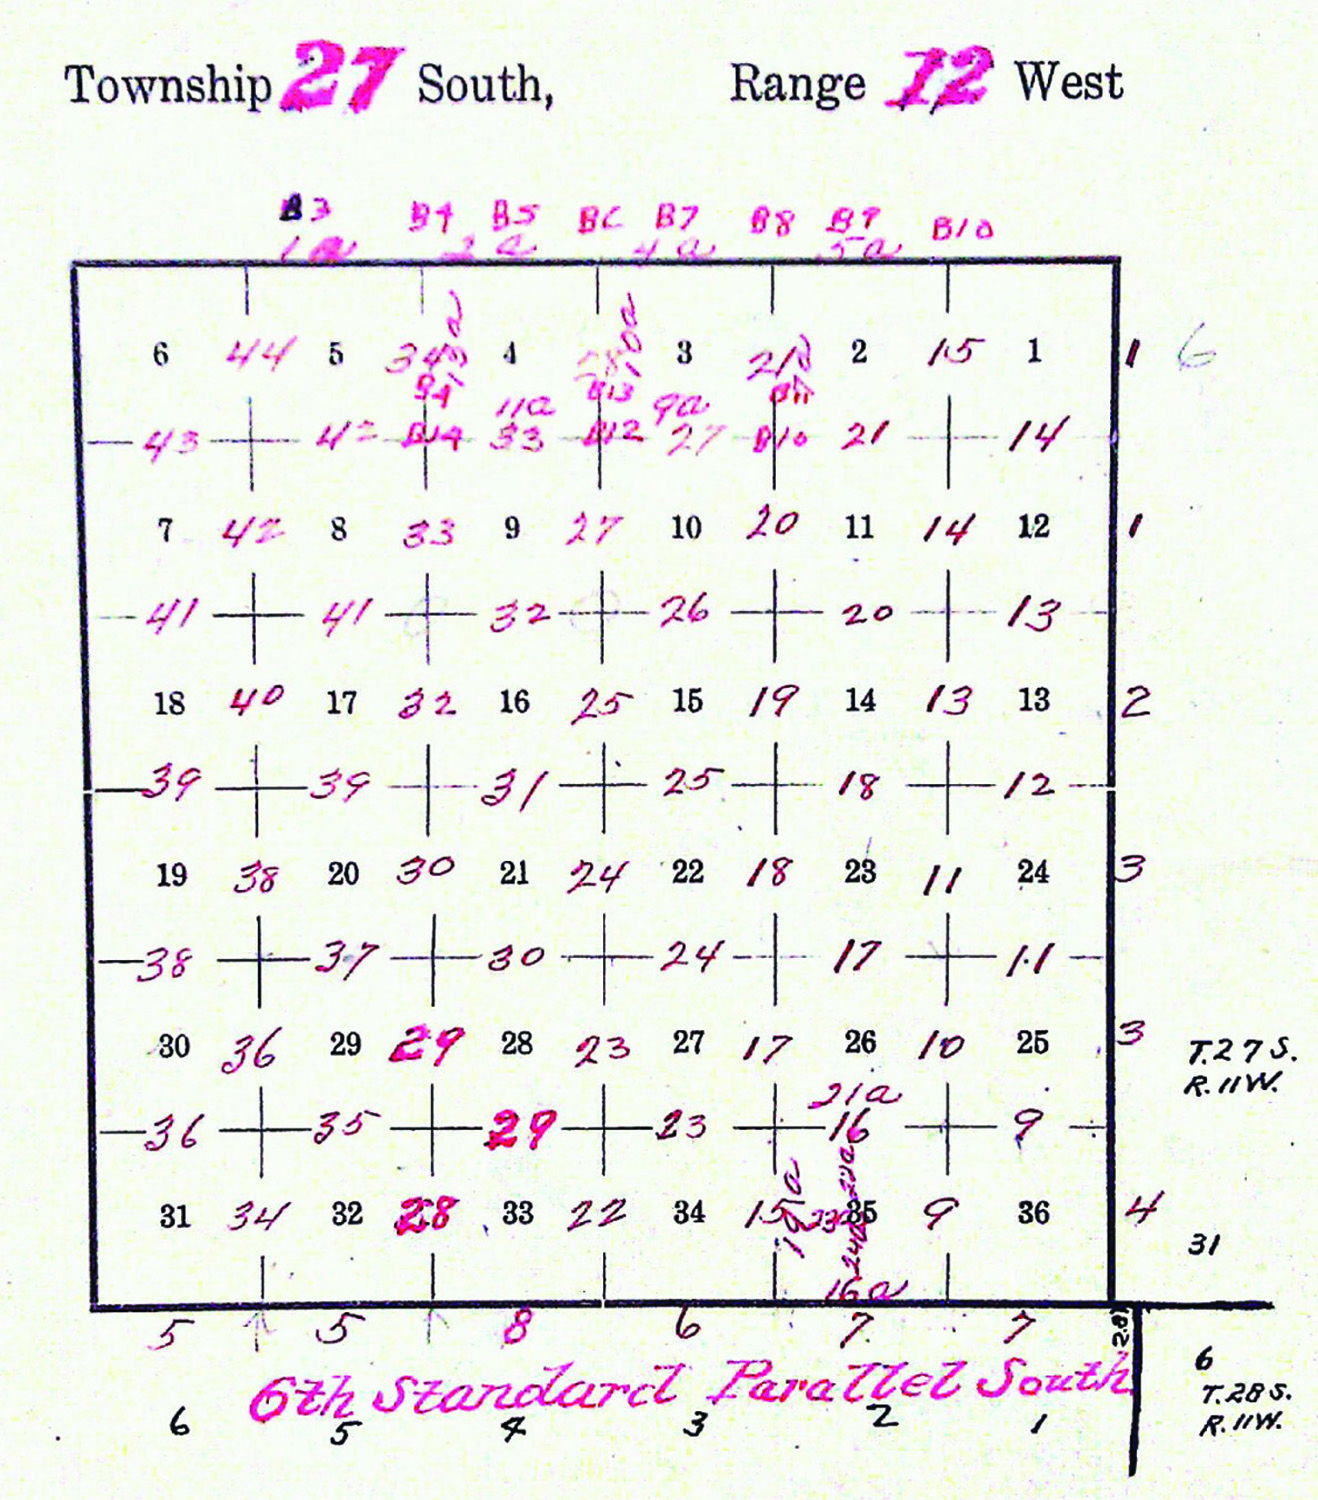 Township 27 South, Range 12 West
B3 B4 B5 B6 B7 B8 B9 B10
1a 2a 4a 5a
6 44 5 34 4 3 21 2 15 1 1 6
B13 B11
11a 9a
43 42 B14 33 B12 27 B10 21 14
7 42 8 33 9 27 10 20 11 14 12 1
41 41 32 26 20 13
18 40 17 32 16 25 15 19 14 13 13 2
39 39 31 25 18 12
19 38 20 30 21 24 22 18 23 11 24 3
38 37 30 24 17 11
30 36 29 29 28 23 27 17 26 10 25 3
T.27S.
R.11W.
21a
36 35 29 23 16 9
31 34 32 28 33 22 34 15 35 9 36 4
19a
31
16a
5 5 8 6 7 7
6th Standard Parallel South
6 5 4 3 2 1
6
T.28S.
R.11W.